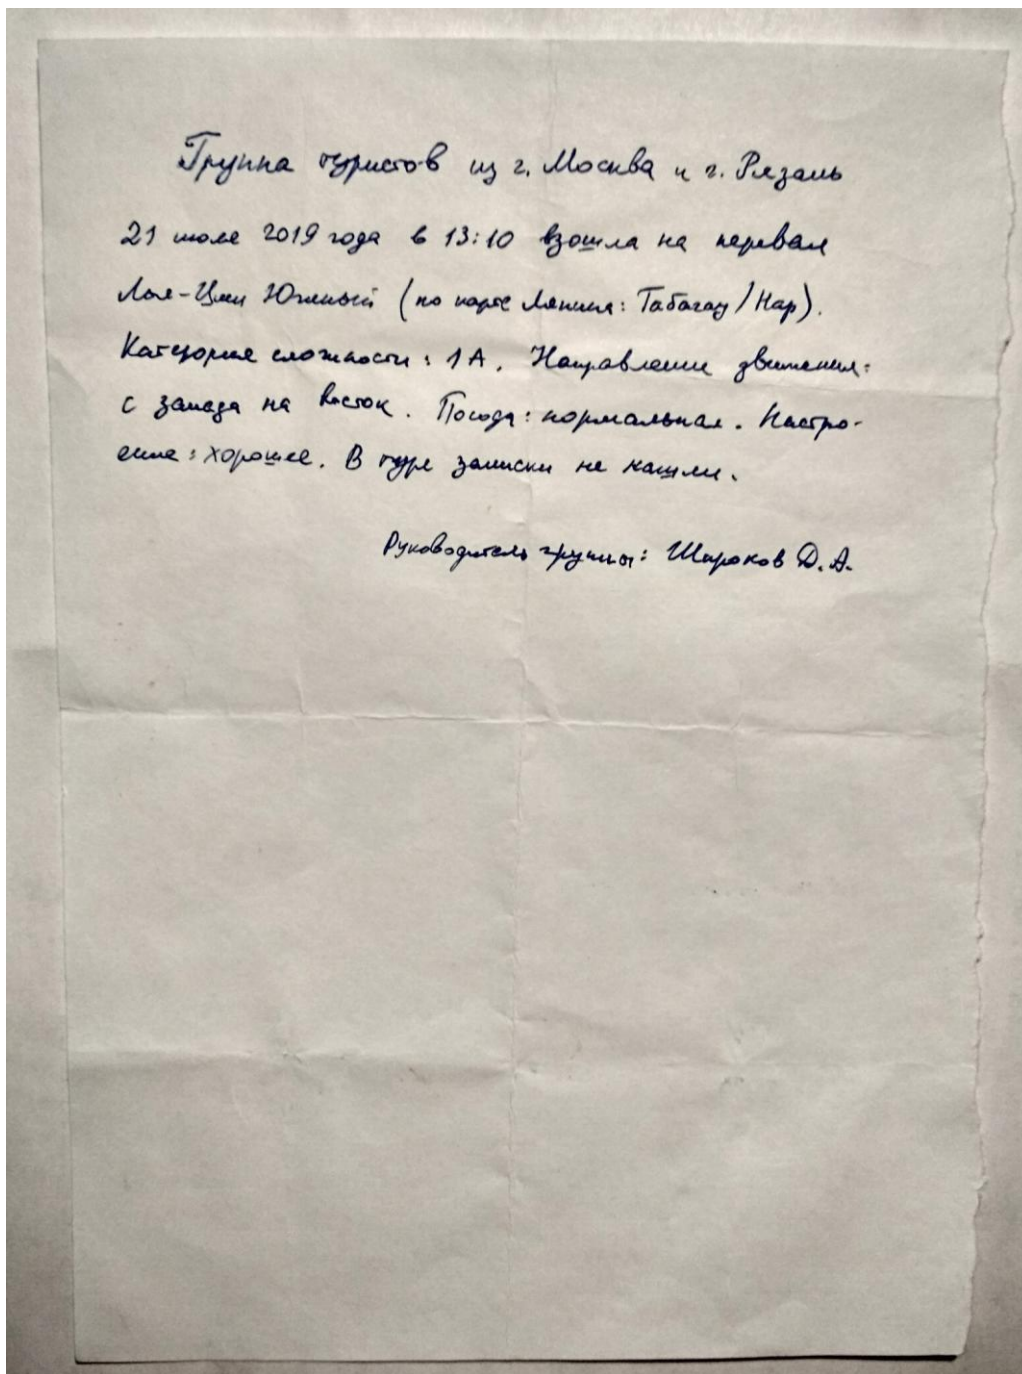 Группа туристов из г. Москва и г. Рязань
21 июля 2019 года в 13:10 взошла на перевал
Лья-Цми Южный (по карте Ляпина: Табагау/Нар).
Категория сложности: 1А. Направление движения:
с запада на восток. Погода: нормальная. Настро-
ение: хорошее. В туре записки не нашли.
Руководитель группы: Широков Д. А.